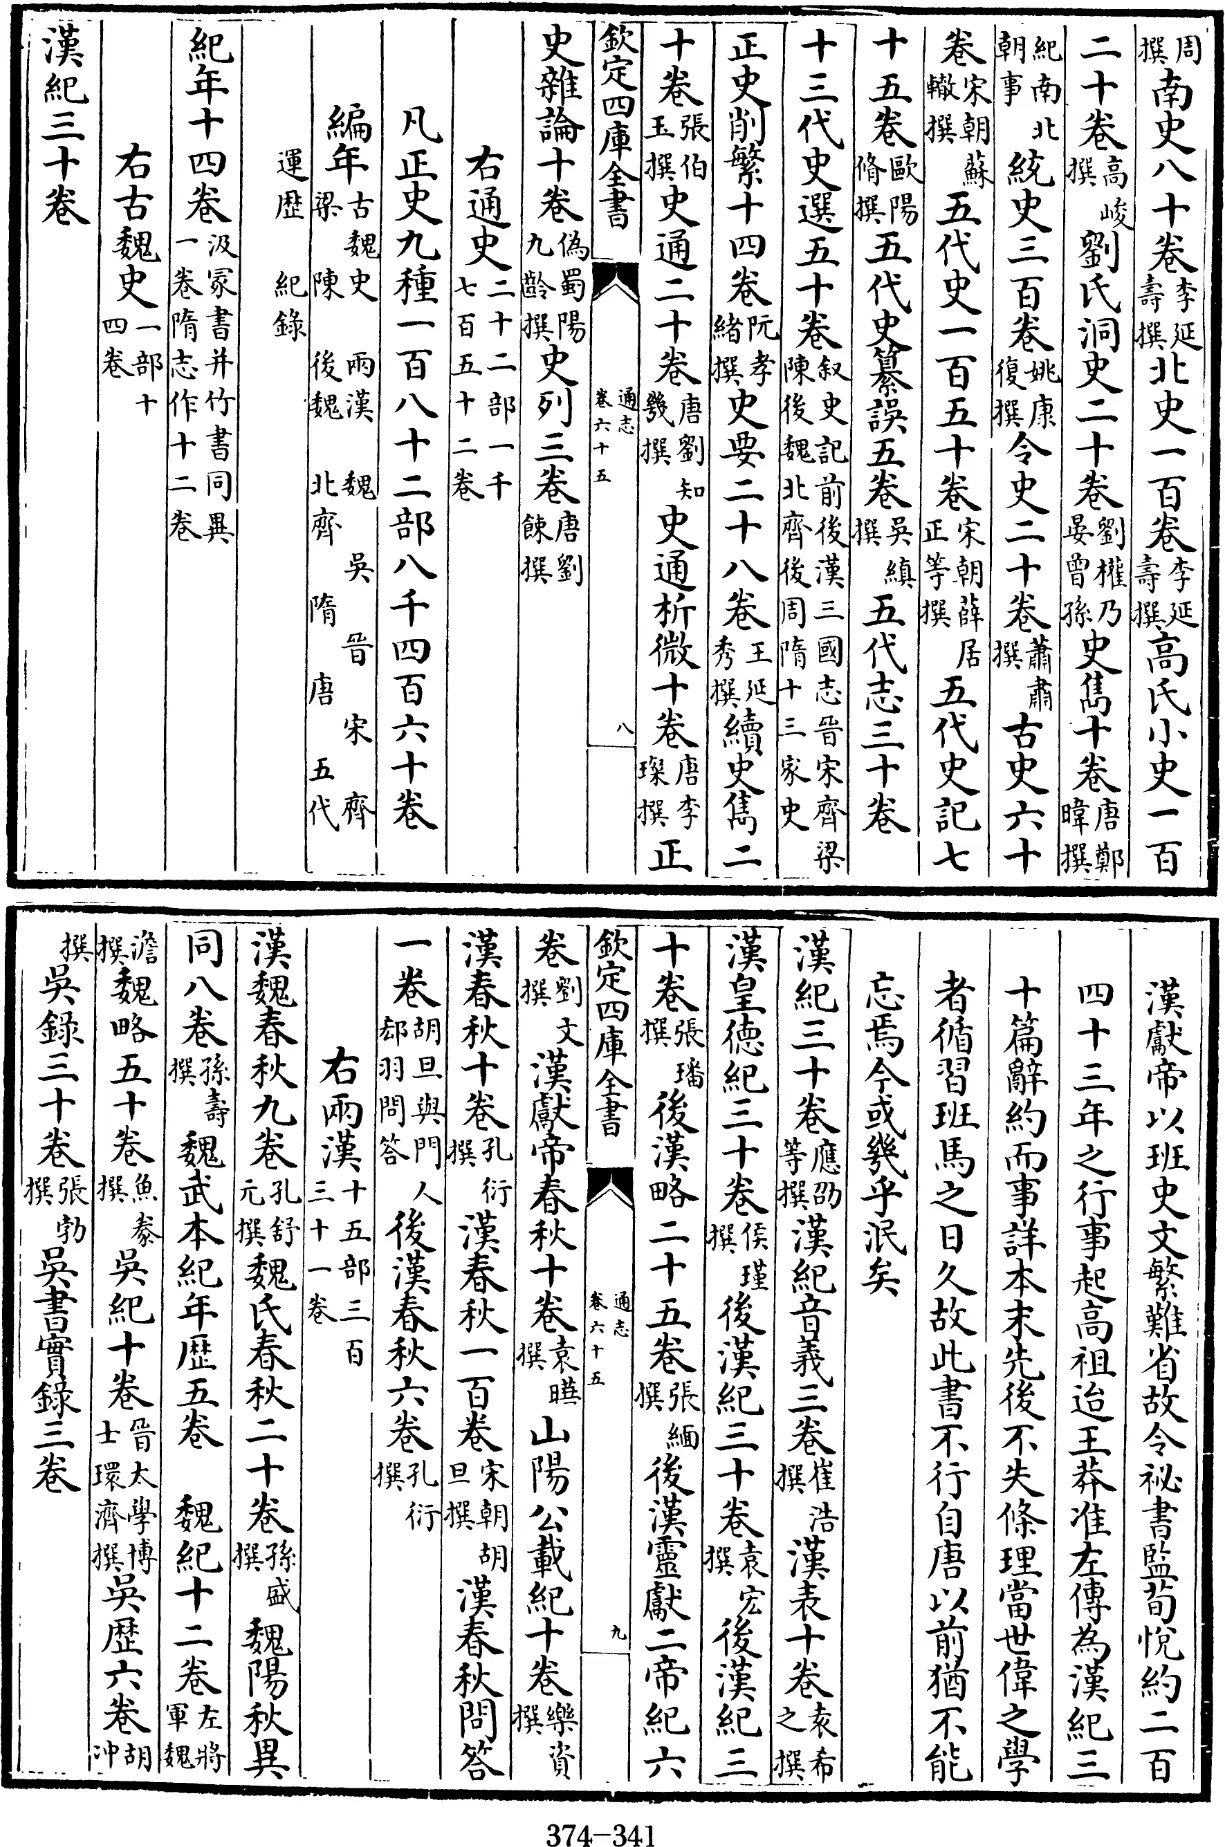 周撰南史八十卷李延壽撰北史一百卷李延壽撰高氏小史一百
二十卷高峻撰劉氏洞史二十卷劉權乃晏曾孫史雋十卷唐鄭暐撰
紀南北朝事統史三百卷姚康復撰令史二十卷蕭肅撰古史六十
卷宋朝蘇轍撰五代史一百五十卷宋朝薛居正等撰五代史記七
十五卷歐陽脩撰五代史纂誤五卷吳縝撰五代志三十卷
十三代史選五十卷叙史記前後漢三國志晉宋齊梁陳後魏北齊後周隋十三家史
正史削繁十四卷阮孝緒撰史要二十八卷王延秀撰續史雋二
十卷張伯玉撰史通二十卷唐劉知幾撰史通析微十卷唐李璨撰正
欽定四庫全書 通志卷六十五 八
史雜論十卷偽蜀陽九齡撰史列三卷唐劉餗撰
右通史二十二部一千七百五十二卷
凡正史九種一百八十二部八千四百六十卷
編年古魏史 兩漢 魏 吳 晉 宋 齊 梁 陳 後魏 北齊 隋 唐 五代
運歷 紀錄
紀年十四卷汲冢書并竹書同異一卷隋志作十二卷
右古魏史一部十四卷
漢紀三十卷
漢獻帝以班史文繁難省故令祕書監荀悅約二百
四十三年之行事起高祖迨王莽准左傳為漢紀三
十篇辭約而事詳本末先後不失條理當世偉之學
者循習班馬之日久故此書不行自唐以前猶不能
忘焉今或幾乎泯矣
漢紀三十卷應劭等撰漢紀音義三卷崔浩撰漢表十卷袁希之撰
漢皇德紀三十卷侯瑾撰後漢紀三十卷袁宏撰後漢紀三
十卷張璠撰後漢略二十五卷張緬撰後漢靈獻二帝紀六
欽定四庫全書 通志卷六十五 九
卷劉文撰漢獻帝春秋十卷袁曄撰山陽公載紀十卷樂資撰
漢春秋十卷孔衍撰漢春秋一百卷宋朝胡旦撰漢春秋問答
一卷胡旦與門人郄羽問答後漢春秋六卷孔衍撰
右兩漢十五部三百三十一卷
漢魏春秋九卷孔舒元撰魏氏春秋二十卷孫盛撰魏陽秋異
同八卷孫壽撰魏武本紀年歷五卷 魏紀十二卷左將軍魏
澹撰魏略五十卷魚豢撰吳紀十卷晉太學博士環濟撰吳歷六卷胡沖
撰吳錄三十卷張勃撰吳書實錄三卷
374-341